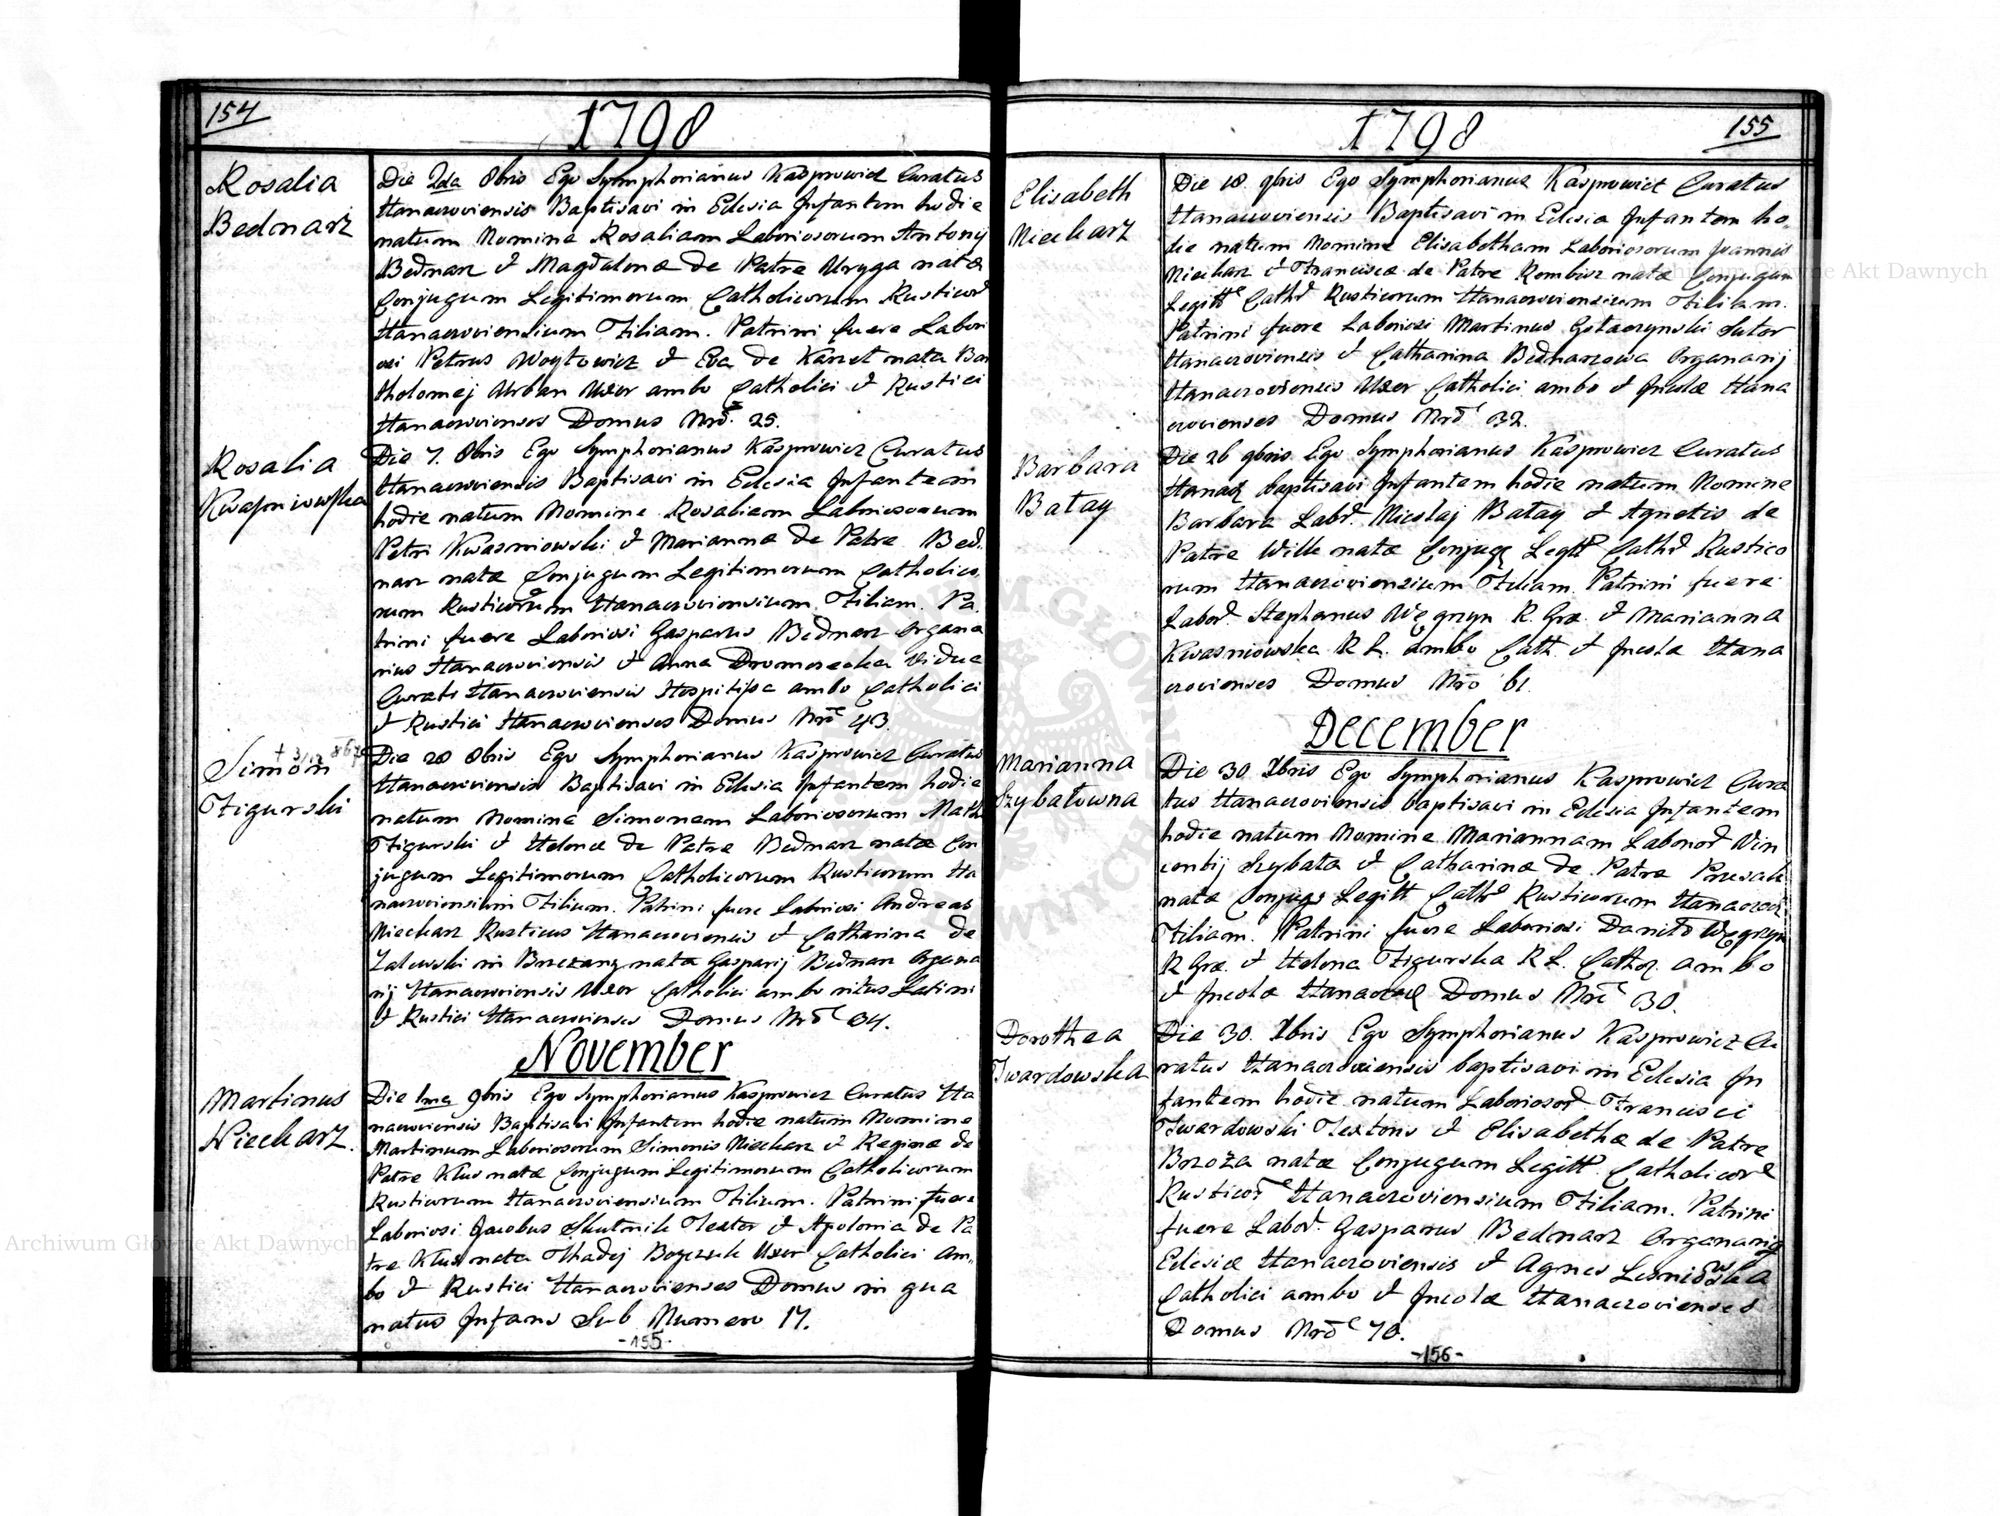 154
1798
Rosalia
Bednarz
Die 2da 8bris Ego Symphorianus Kasprowicz Curatus
Hanaczoviensis Baptisavi in Eclesia Infantem hodie
natum Nomine Rosaliam Laboriosorum Antonij
Bednarz & Magdalenæ de Patre Uryga natæ
Conjugum Legitimorum Catholicorum Rusticor
Hanaczoviensium Filiam. Patrini fuere Labori
osi Petrus Woytowicz & Eva de nata Bar
tholomej Urban Uxor ambo Catholici & Rustici
Hanaczovienses Domus Nrõ 25.
Rosalia
Kwasniowska
Die 7. 8bris Ego Symphorianus Kasprowicz Curatus
Hanaczoviensis Baptisavi in Eclesia Infantem
hodie natum Nomine Rosaliam Laboriosorum
Petri Kwasniowski & Mariannæ de Patre Bed.
narz natæ Conjugum Legitimorum Catholico.
rum Rusticorum Hanaczoviensium Filiam. Pa.
trini fuere Laboriosi Gasparus Bednarz Organa
rius Hanaczoviensis & Anna Dromerecka Vidua
Curati Hanaczoviensis Hospitissa ambo Catholici
& Rustici Hanaczovienses Domus Nrõ 43.
Simon
Figurski
Die 28 8bris Ego Symphorianus Kasprowicz Curatus
Hanaczoviensis Baptisavi in Eclesia Infantem hodie
natum Nomine Simonem Laboriosorum Math
Figurski & Helenæ de Patre Bednarz natæ Con
jugum Legitimorum Catholicorum Rusticorum Ha
naczoviensium Filium. Patrini fuere Laboriosi Andreas
Niecharz Rusticus Hanaczoviensis & Catharina de
Zalewski in Brzezany nata Gasparij Bednarz Organa
rij Hanaczoviensis Uxor Catholici ambo ritus Latini
& Rustici Hanaczovienses Domus Nrõ 34.
November
Martinus
Niecharz.
Die 1ma 9bris Ego Symphorianus Kasprowicz Curatus Ha
naczoviensis Baptisavi Infantem hodie natum Nomine
Martinum Laboriosorum Simonis Niecharz & Reginæ de
Patre Klus natæ Conjugum Legitimorum Catholicorum
Rusticorum Hanaczoviensium Filium. Patrini fuere
Laboriosi Jacobus Skutnik Textor & Apolonia de Pa
tre Klus nata Thadej Uxor Catholici am.
bo & Rustici Hanaczovienses Domus in qua
natus Infans Sub Numero 17.
-155-
1798
155
Elisabeth
Niecharz
Die 18. 9bris Ego Symphorianus Kasprowicz Curatus
Hanaczoviensis Baptisavi in Eclesia Infantem ho.
die natum Nomine Elisabetham Laboriosorum Joannis
Niecharz & Franciscæ de Patre Rembisz natæ Conjugum
Legitt Cathol Rusticorum Hanaczoviensium Filiam.
Patrini fuere Laboriosi Martinus Gołaczynski Sutor
Hanaczoviensis & Catharina Bednarzowa Organarij
Hanaczoviensis Uxor Catholici ambo & Incolæ Hana
czovienses Domus Nrõ 32.
Barbara
Batay
Die 26 9bris Ego Symphorianus Kasprowicz Curatus
Hanacz baptisavi Infantem hodie natum Nomine
Barbara Labr. Nicolaj Batay & Agnetis de
Patre Wilk natæ Conjug Legitt Cath Rustico
rum Hanaczoviensium Filiam. Patrini fuere
Labor. Stephanus Węgrzyn R. Græ. & Marianna
Kwasniowska R. L. ambo Cath. & Incolæ Hana
czovienses Domus Nro 61.
December
Marianna
Szybatowna
Die 30. Xbris Ego Symphorianus Kasprowicz Cura
tus Hanaczoviensis baptisavi in Eclesia Infantem
hodie natum Nomine Mariannam Labor Vin
centij Szybata & Catharinæ de Patre Prusak
natæ Conjugs Legitt Cath Rusticorum Hanaczov
Filiam. Patrini fuere Laboriosi Daniło Węgrzyn
R Græ. & Helena Figurska R. L. Cathol. ambo
& Incolæ Hanaczov Domus Nrõ 30.
Dorothea
Twardowska
Die 30. Xbris Ego Symphorianus Kasprowicz Cu
ratus Hanaczoviensis baptisavi in Eclesia In
fantem hodie natum Laboriosor Francisci
Twardowski Textoris & Elisabethæ de Patre
Brzoza natæ Conjugum Legitt Catholicor
Rusticor Hanaczoviensium Filiam. Patrini
fuere Labor. Gasparus Bednarz Organarig
Eclesiæ Hanaczoviensis & Agnes Lesniowska
Catholici ambo & Incolæ Hanaczovienses
Domus Nrõ 70.
-156-
Archiwum Główne Akt Dawnych
Archiwum Główne Akt Dawnych